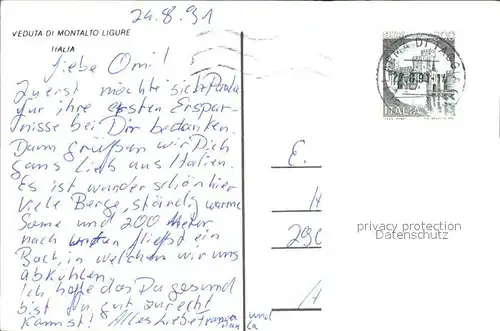 24.8.91
VEDUTA DI MONTALTO LIGURE
ITALIA
Liebe Omi!
Zuerst möchte sich Paula
für ihre ersten Erspar-
nisse bei Dir bedanken.
Dann grüßen wir Dich
ganz lieb aus Italien.
Es ist wunderschön hier
Viele Berge, ständig warme
Sonne und 200 Meter
nach unten fließt ein
Bach, in welchem wir uns
abkühlen.
Ich hoffe das Du gesund
bist und gut zurecht
kommst! Alles Liebe
und
ITALIA
E.
privacy protection
Datenschutz